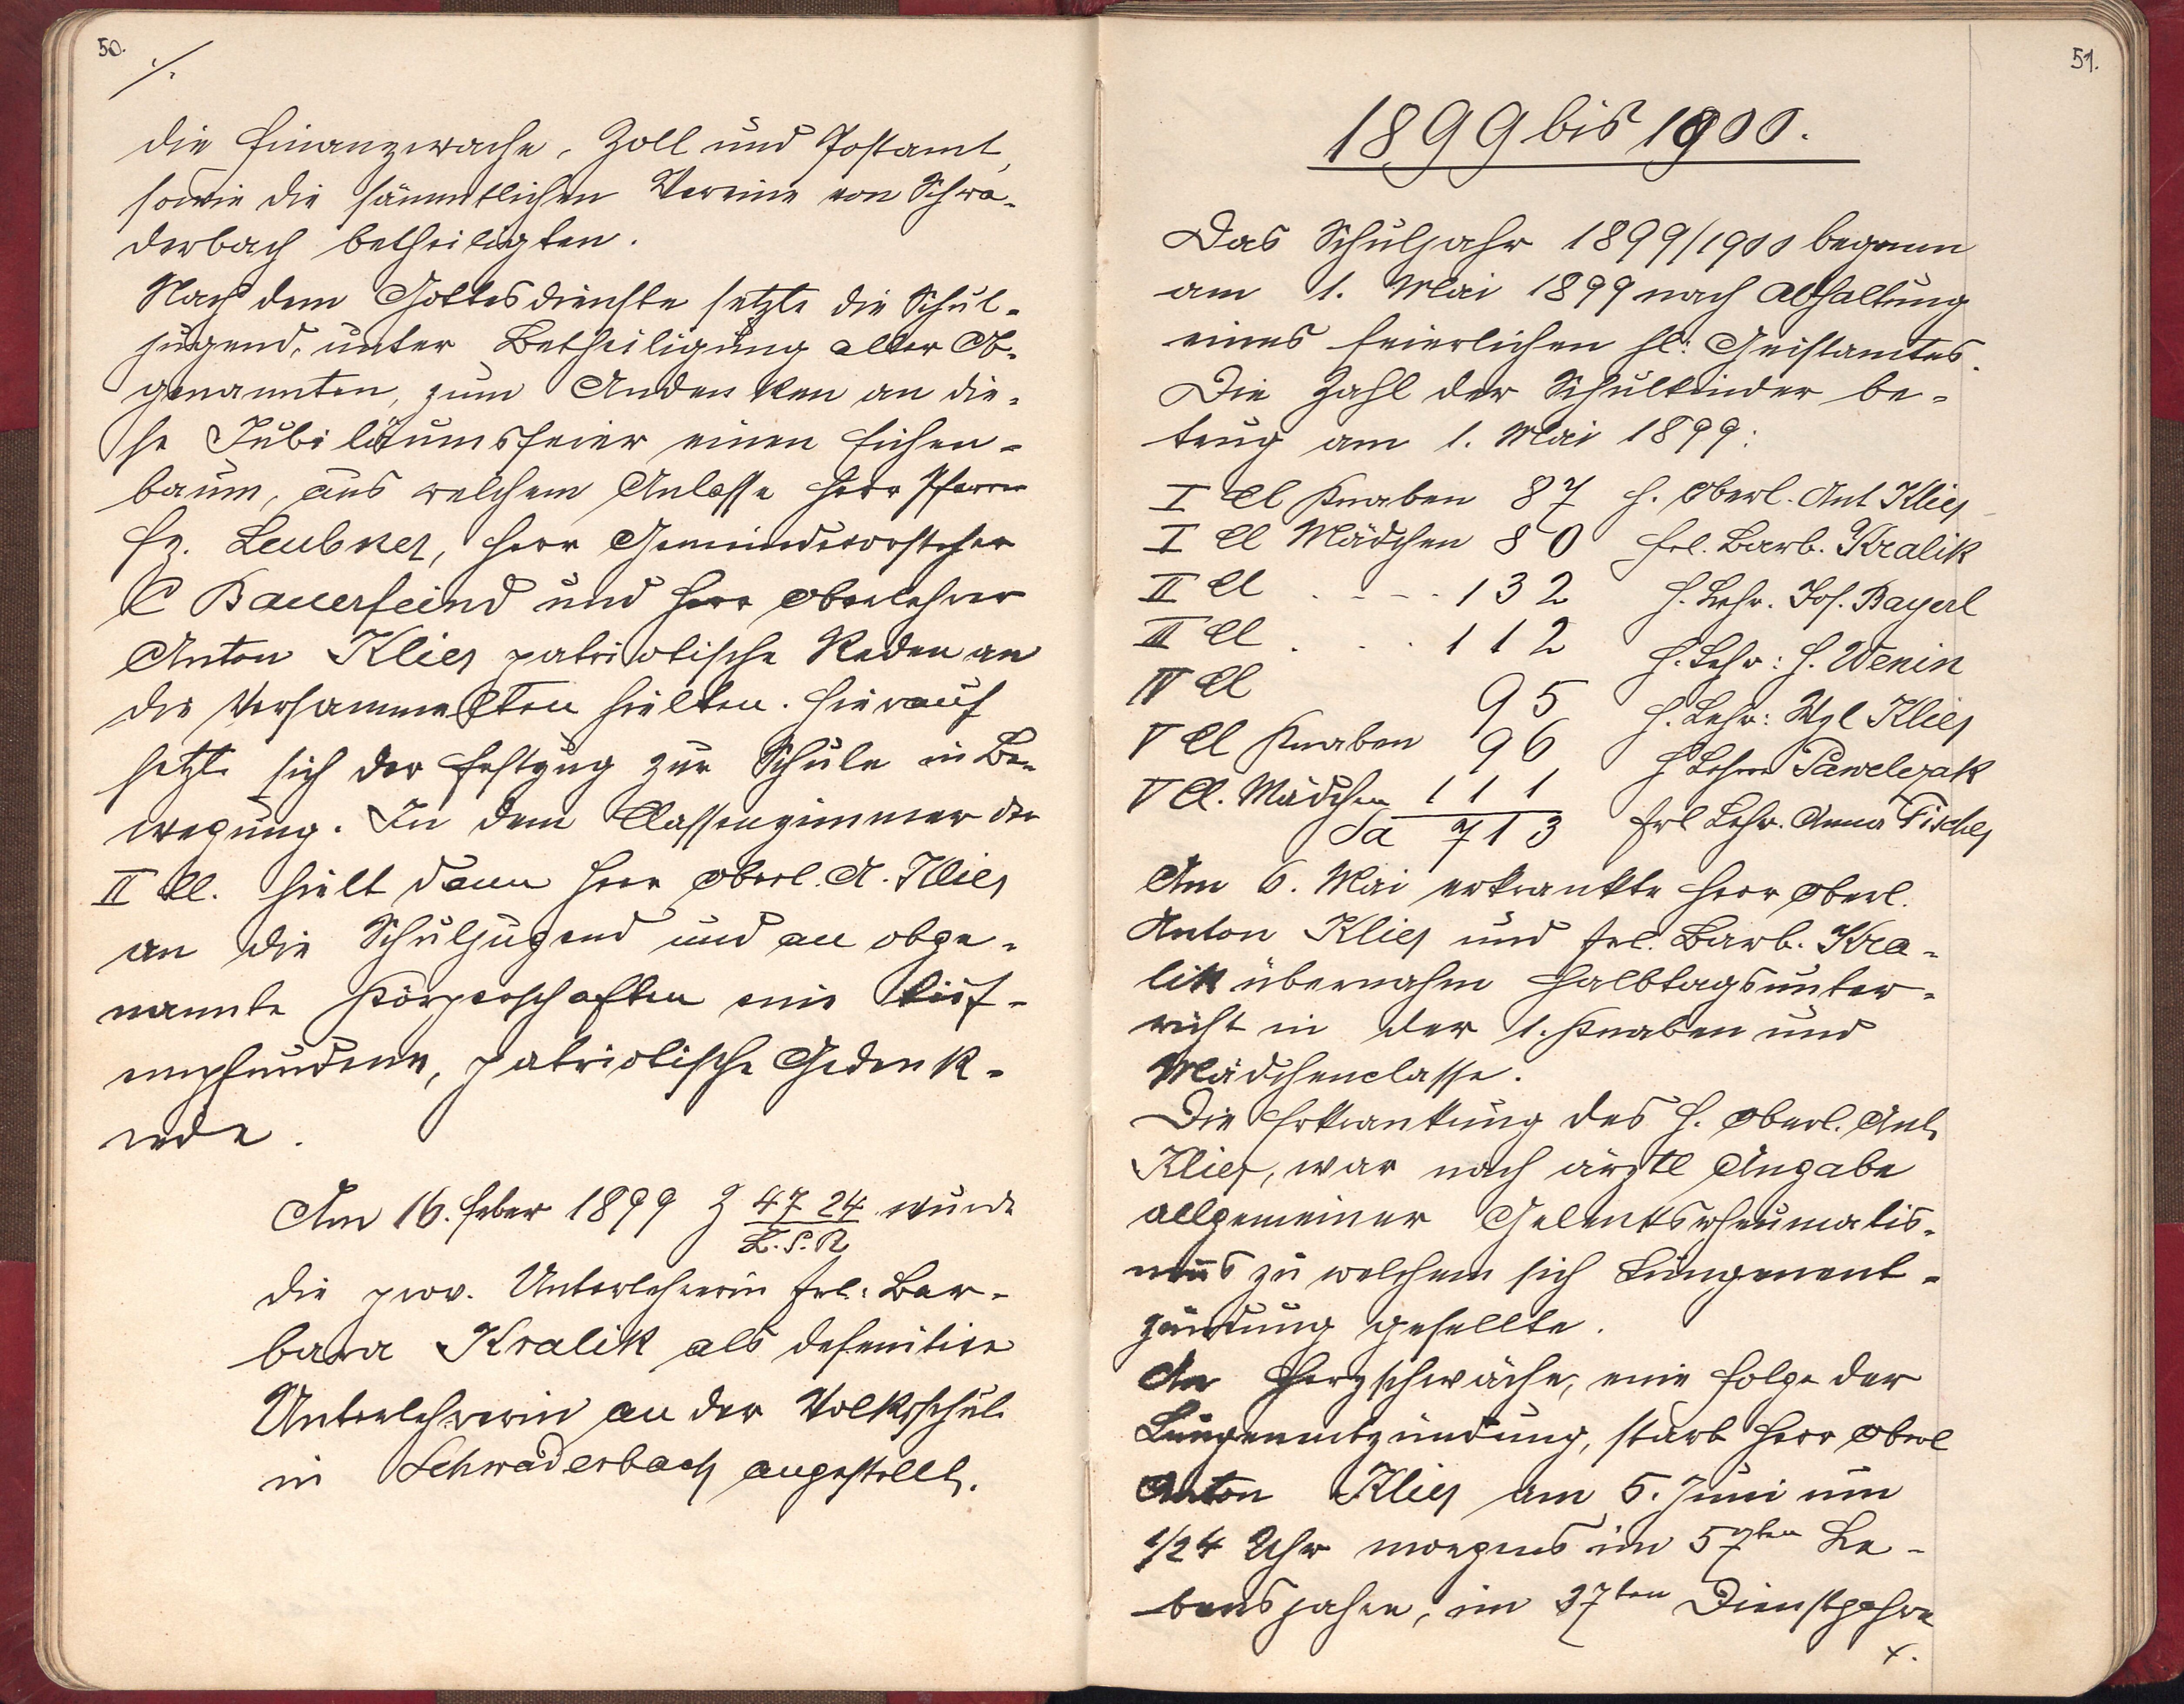 50.
./.
die Finanzwache, Zoll und Postamt,
sowie die sämmtlichen Vereine von Schwa-
derbach betheiligten.
Nach dem Gottesdienste setzte die Schul-
jugend, unter Betheiligung aller Ob-
genannten, zum Andenken an die-
se Jubiläumsfeier einen Eichen-
baum, aus welchem Anlasse Herr Pfarrer
Fz. Leubner, Herr Gemeindevorsteher
C Bauerfeind und Herr Oberlehrer
Anton Klier patriotische Reden an
die Versammelten hielten. Hierauf
setzte sich der Festzug zur Schule in Be-
wegung. In dem Classenzimmer der
II Cl. hielt dann Herr Oberl. A. Klier
an die Schuljugend und an obge-
nannte Körperschaften eine tief-
empfundene, patriotische Gedenk-
rede.
Am 16. Feber 1899 Z 4724 wurde
L.S.R
die prov. Unterlehrerin Frl. Bar-
bara Kralik als defenitive
Unterlehrerin an der Volksschule
in Schwaderbach angestellt.
51.
1899 bis 1900.
Das Schuljahr 1899/1900 begann
am 1. Mai 1899 nach Abhaltung
eines feierlichen hl: Geistamtes.
Die Zahl der Schulkinder be-
trug am 1. Mai 1899:
I Cl Knaben 87 H. Oberl. Ant Klier
I Cl Mädchen 80 Frl. Barb. Kralik
II Cl . - - . 132 H. Lehr. Jos. Bayerl
III Cl . . . 112 H. Lehr: H. Wenin
IV Cl 95 H. Lehr: Wzl Klier
V Cl Knaben 96 H Lehrer Pawelczak
V Cl. Mädchen 111 Frl Lehr. Anna Fischer
Sa 713
Am 6. Mai erkrankte Herr Oberl.
Anton Klier und Frl. Barb. Kra-
lik übernahm Halbtagsunter-
richt in der 1. Knaben und
Mädchenclasse.
Die Erkrankung des H. Oberl. Ant.
Klier, war nach ärztl Angabe
allgemeiner Gelenksrheumatis-
mus zu welchem sich Lungenent-
zündung gesellte.
An Herzschwäche, eine Folge der
Lungenentzündung, starb Herr Oberl
Anton Klier am 5. Juni um
1/24 Uhr morgens im 57ten Le-
bensjahre, im 37ten Dienstjahre
./.